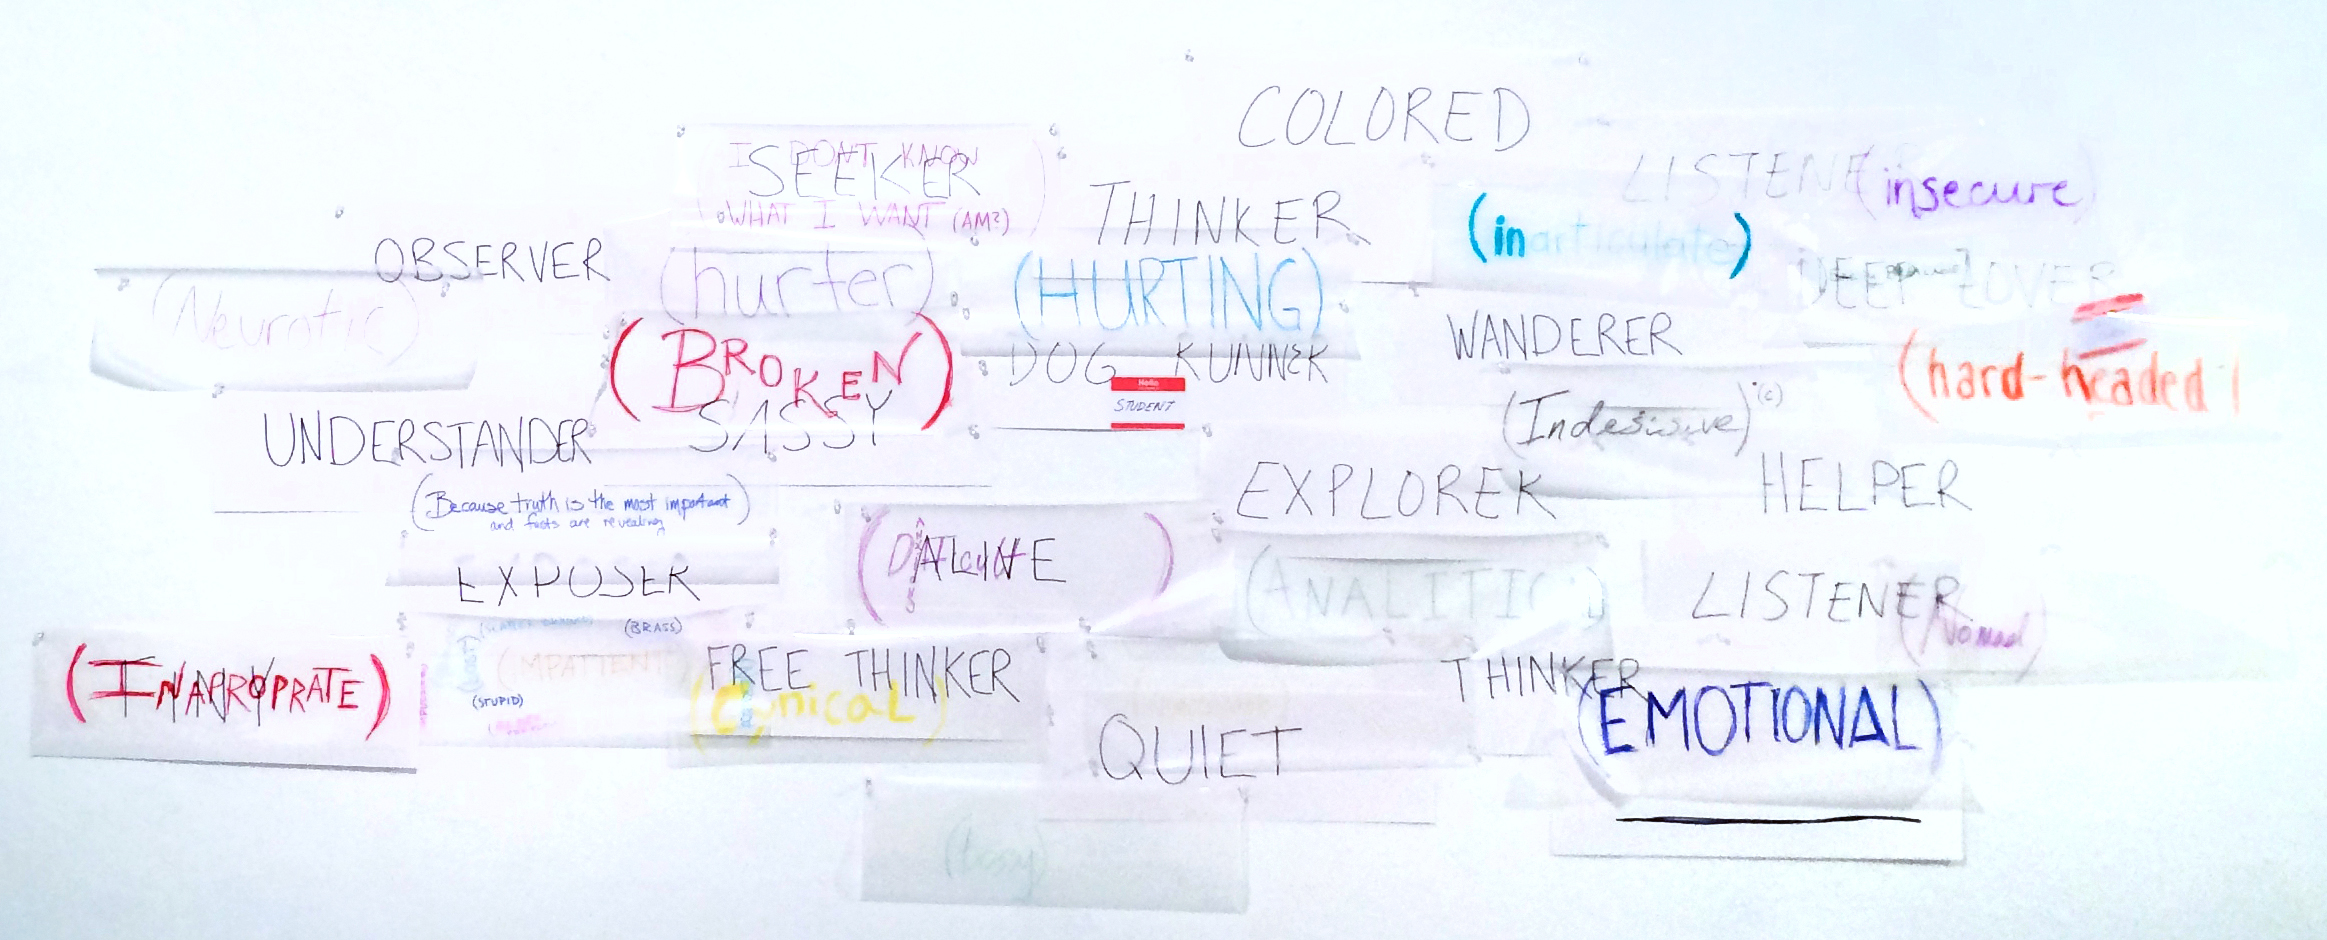 COLORED
I DONT KNOW
SEEKER
WHAT I WANT (AM?)
LISTENE
(insecure)
THINKER
(inarticulate)
OBSERVER
(hurter)
(HURTING)
DEEP LOVER
(Neurotic)
(BROKEN)
WANDERER
DOG RUNNER
Hello
STUDENT
(hard-headed)
SASSY
(Indesisive) (c)
UNDERSTANDER
EXPLORER
HELPER
(Because truth is the most important
and facts are revealing)
EXPOSER
(ANALITIC
LISTENER
(Nomad)
(BRASS)
(IMPATIENT)
(STUPID)
(INAPROPRATE)
FREE THINKER
(Cynical)
THINKER
(EMOTIONAL)
QUIET
(bossy)